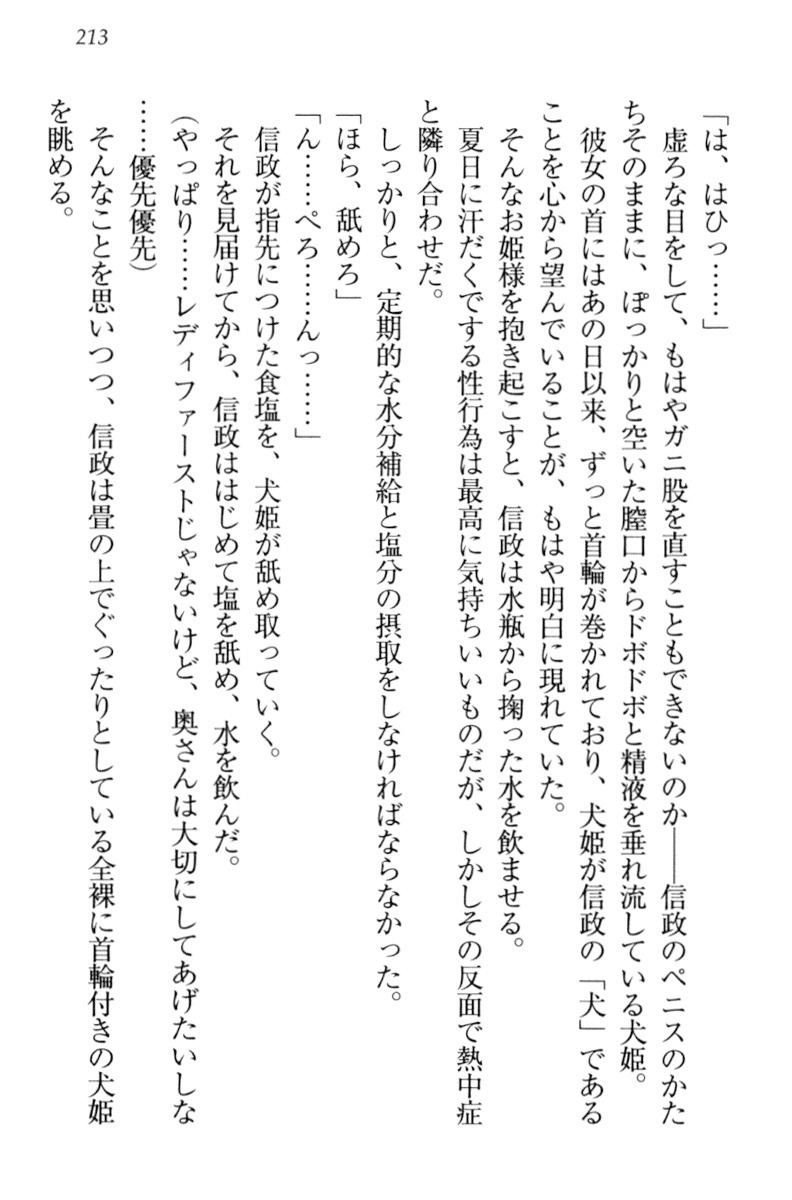 213
「は、はひっ……」
　虚ろな目をして、もはやガニ股を直すこともできないのか――信政のペニスのかた
ちそのままに、ぽっかりと空いた膣口からドボドボと精液を垂れ流している犬姫。
　彼女の首にはあの日以来、ずっと首輪が巻かれており、犬姫が信政の「犬」である
ことを心から望んでいることが、もはや明白に現れていた。
　そんなお姫様を抱き起こすと、信政は水瓶から掬った水を飲ませる。
　夏日に汗だくでする性行為は最高に気持ちいいものだが、しかしその反面で熱中症
と隣り合わせだ。
　しっかりと、定期的な水分補給と塩分の摂取をしなければならなかった。
「ほら、舐めろ」
「ん……ぺろ……んっ……」
　信政が指先につけた食塩を、犬姫が舐め取っていく。
　それを見届けてから、信政ははじめて塩を舐め、水を飲んだ。
（やっぱり……レディファーストじゃないけど、奥さんは大切にしてあげたいしな
……優先優先）
　そんなことを思いつつ、信政は畳の上でぐったりとしている全裸に首輪付きの犬姫
を眺める。